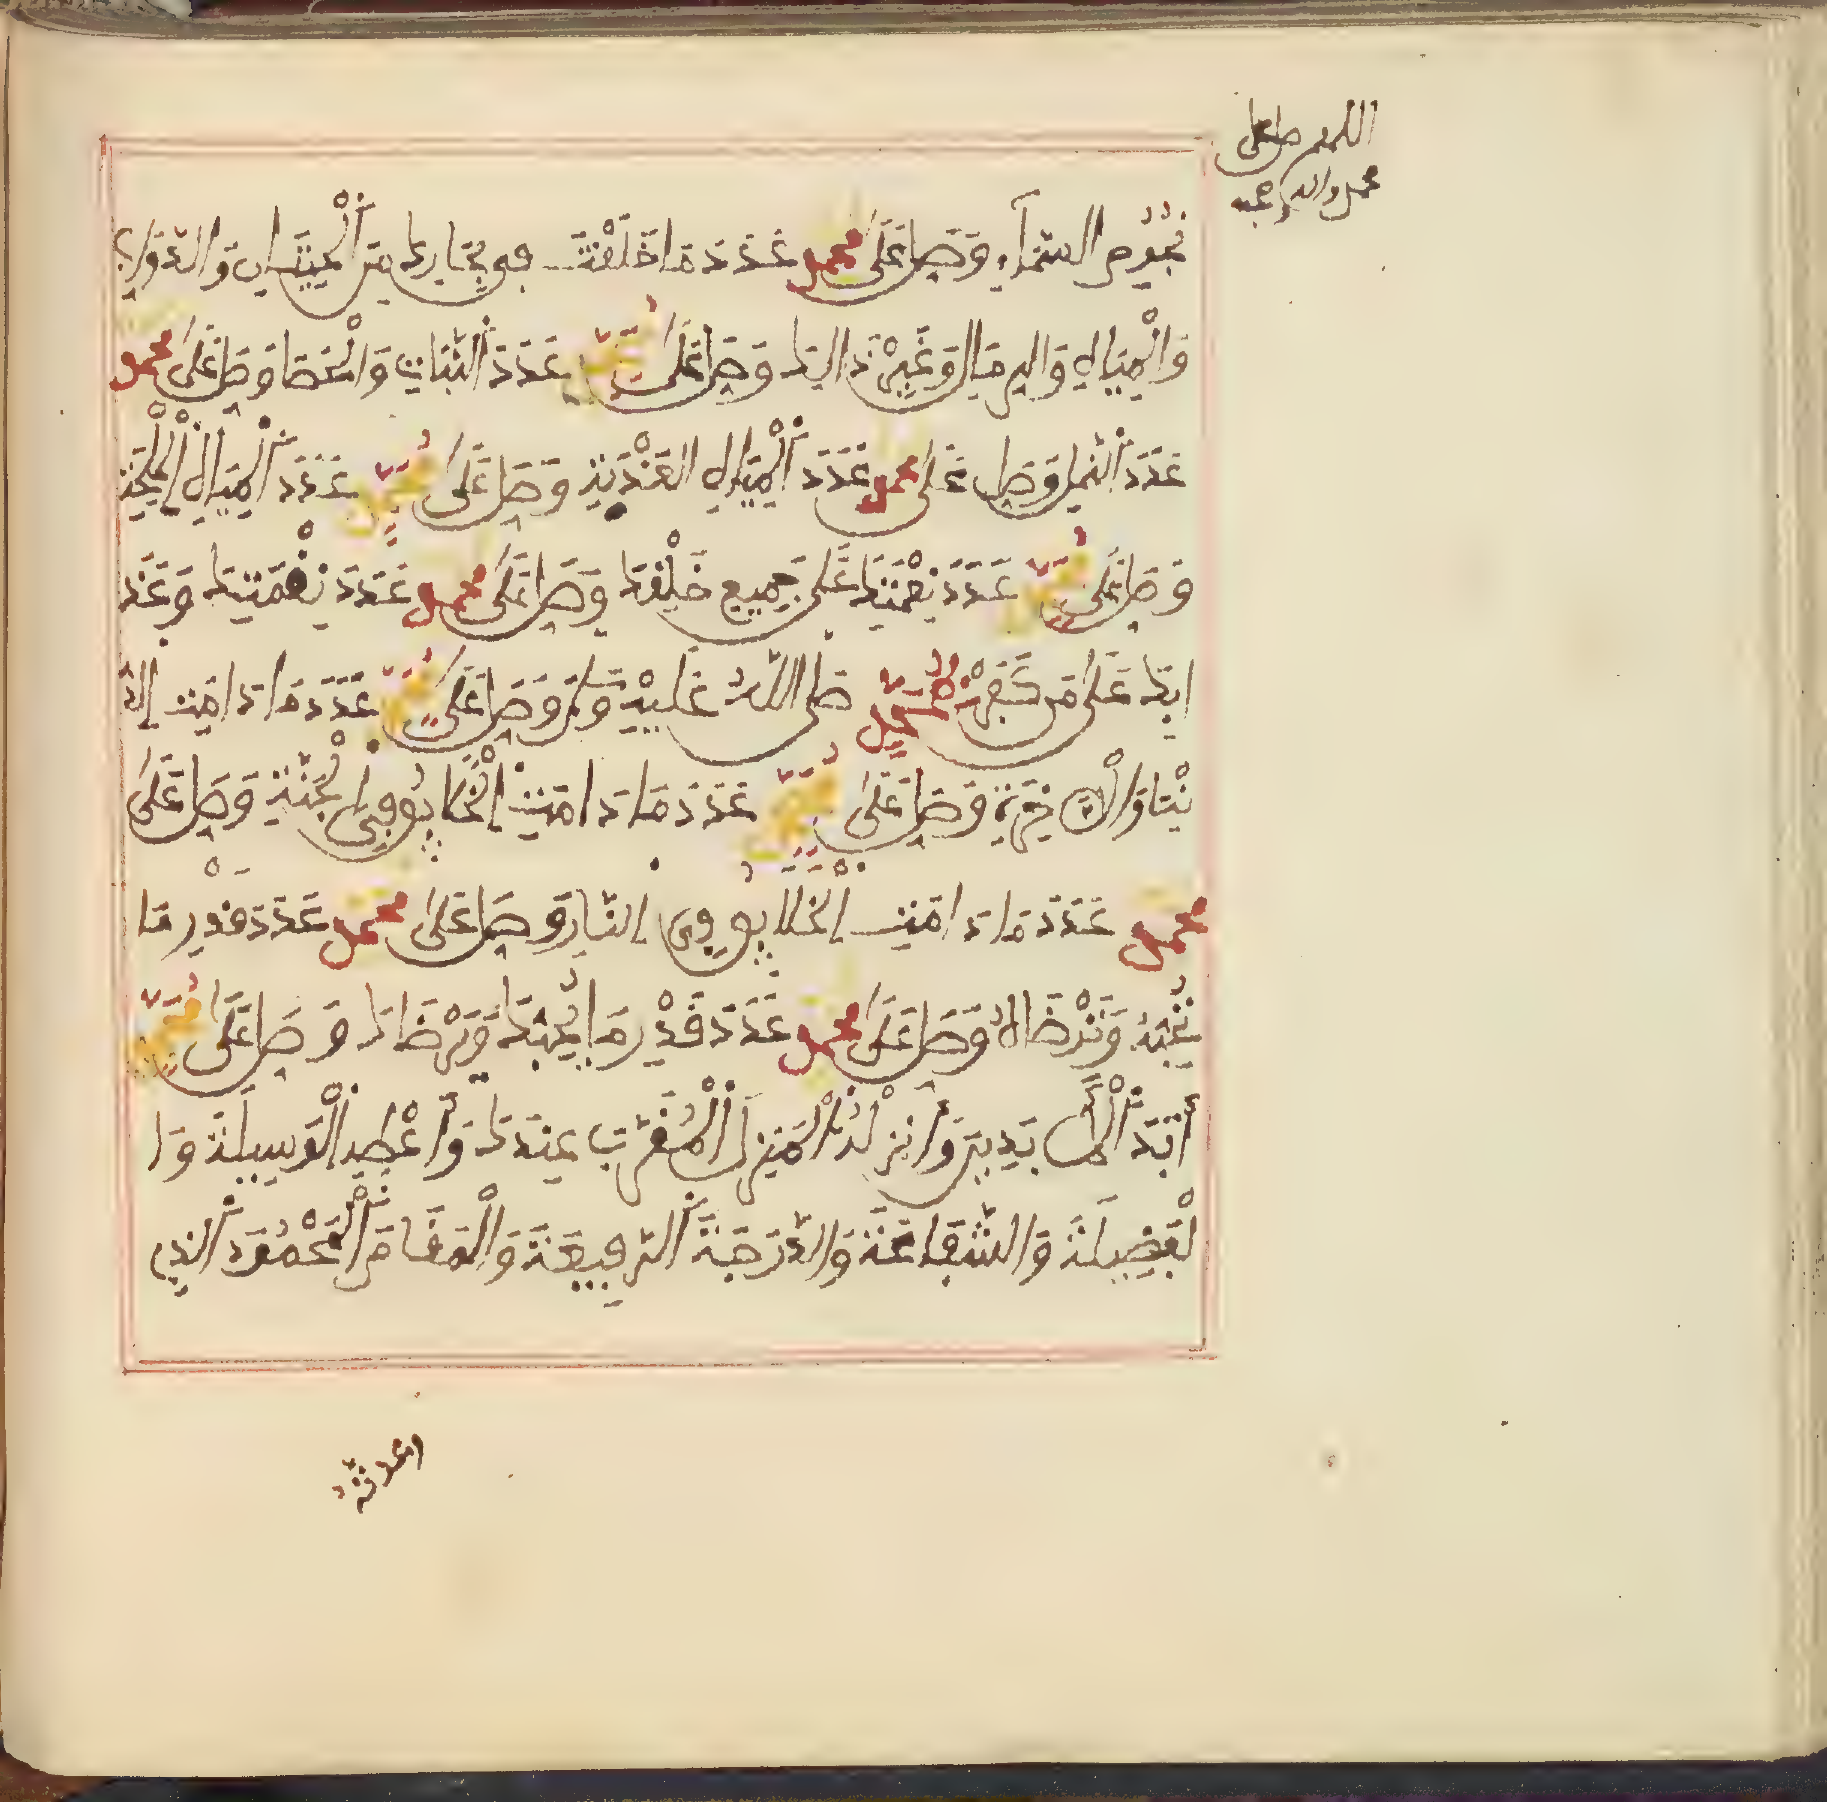 اللهم صل على
محمد واله وصحبه
نُجُومِ السَّمَآءِ وَصَلِّ عَلَىٰ مُحَمَّدٍ عَدَدَ مَا خَلَقْتَ فِي بِحَارِكَ مِنَ الْحِيتَانِ وَالدَّوَابِّ
وَالْمِيَاهِ وَالرِّمَالِ وَغَيْرِ ذَالِكَ وَصَلِّ عَلَىٰ مُحَمَّدٍ عَدَدَ النَّبَاتِ وَالْحَصَا وَصَلِّ عَلَىٰ مُحَمَّدٍ
عَدَدَ النَّمْلِ وَصَلِّ عَلَىٰ مُحَمَّدٍ عَدَدَ الْمِيَاهِ الْعَذْبَةِ وَصَلِّ عَلَىٰ مُحَمَّدٍ عَدَدَ الْمِيَاهِ الْمِلْحَةِ
وَصَلِّ عَلَىٰ مُحَمَّدٍ عَدَدَ نِعْمَتِكَ عَلَىٰ جَمِيعِ خَلْقِكَ وَصَلِّ عَلَىٰ مُحَمَّدٍ عَدَدَ نِقْمَتِكَ وَعَذَ
ابِكَ عَلَىٰ مَن كَفَرَ بِمُحَمَّدٍ صَلَّى اللَّهُ عَلَيْهِ وَسَلَّمَ وَصَلِّ عَلَىٰ مُحَمَّدٍ عَدَدَ مَا دَامَتِ الدُّ
نْيَا وَالْآخِرَةُ وَصَلِّ عَلَىٰ مُحَمَّدٍ عَدَدَ مَا دَامَتِ الْخَلَائِقُ فِي الْجَنَّةِ وَصَلِّ عَلَىٰ
مُحَمَّدٍ عَدَدَ مَا دَامَتِ الْخَلَائِقُ فِي النَّارِ وَصَلِّ عَلَىٰ مُحَمَّدٍ عَدَدَ قَدْرِ مَا
تُحِبُّهُ وَتَرْضَاهُ وَصَلِّ عَلَىٰ مُحَمَّدٍ عَدَدَ قَدْرِ مَا يُحِبُّكَ وَيَرْضَاكَ وَصَلِّ عَلَىٰ مُحَمَّدٍ
أَبَدَ الْآبِدِينَ وَأَنزِلْهُ الْمَنزِلَ الْمُقَرَّبَ عِندَكَ وَأَعْطِهِ الْوَسِيلَةَ وَا
لْفَضِيلَةَ وَالشَّفَاعَةَ وَالدَّرَجَةَ الرَّفِيعَةَ وَالْمَقَامَ الْمَحْمُودَ الَّذِي